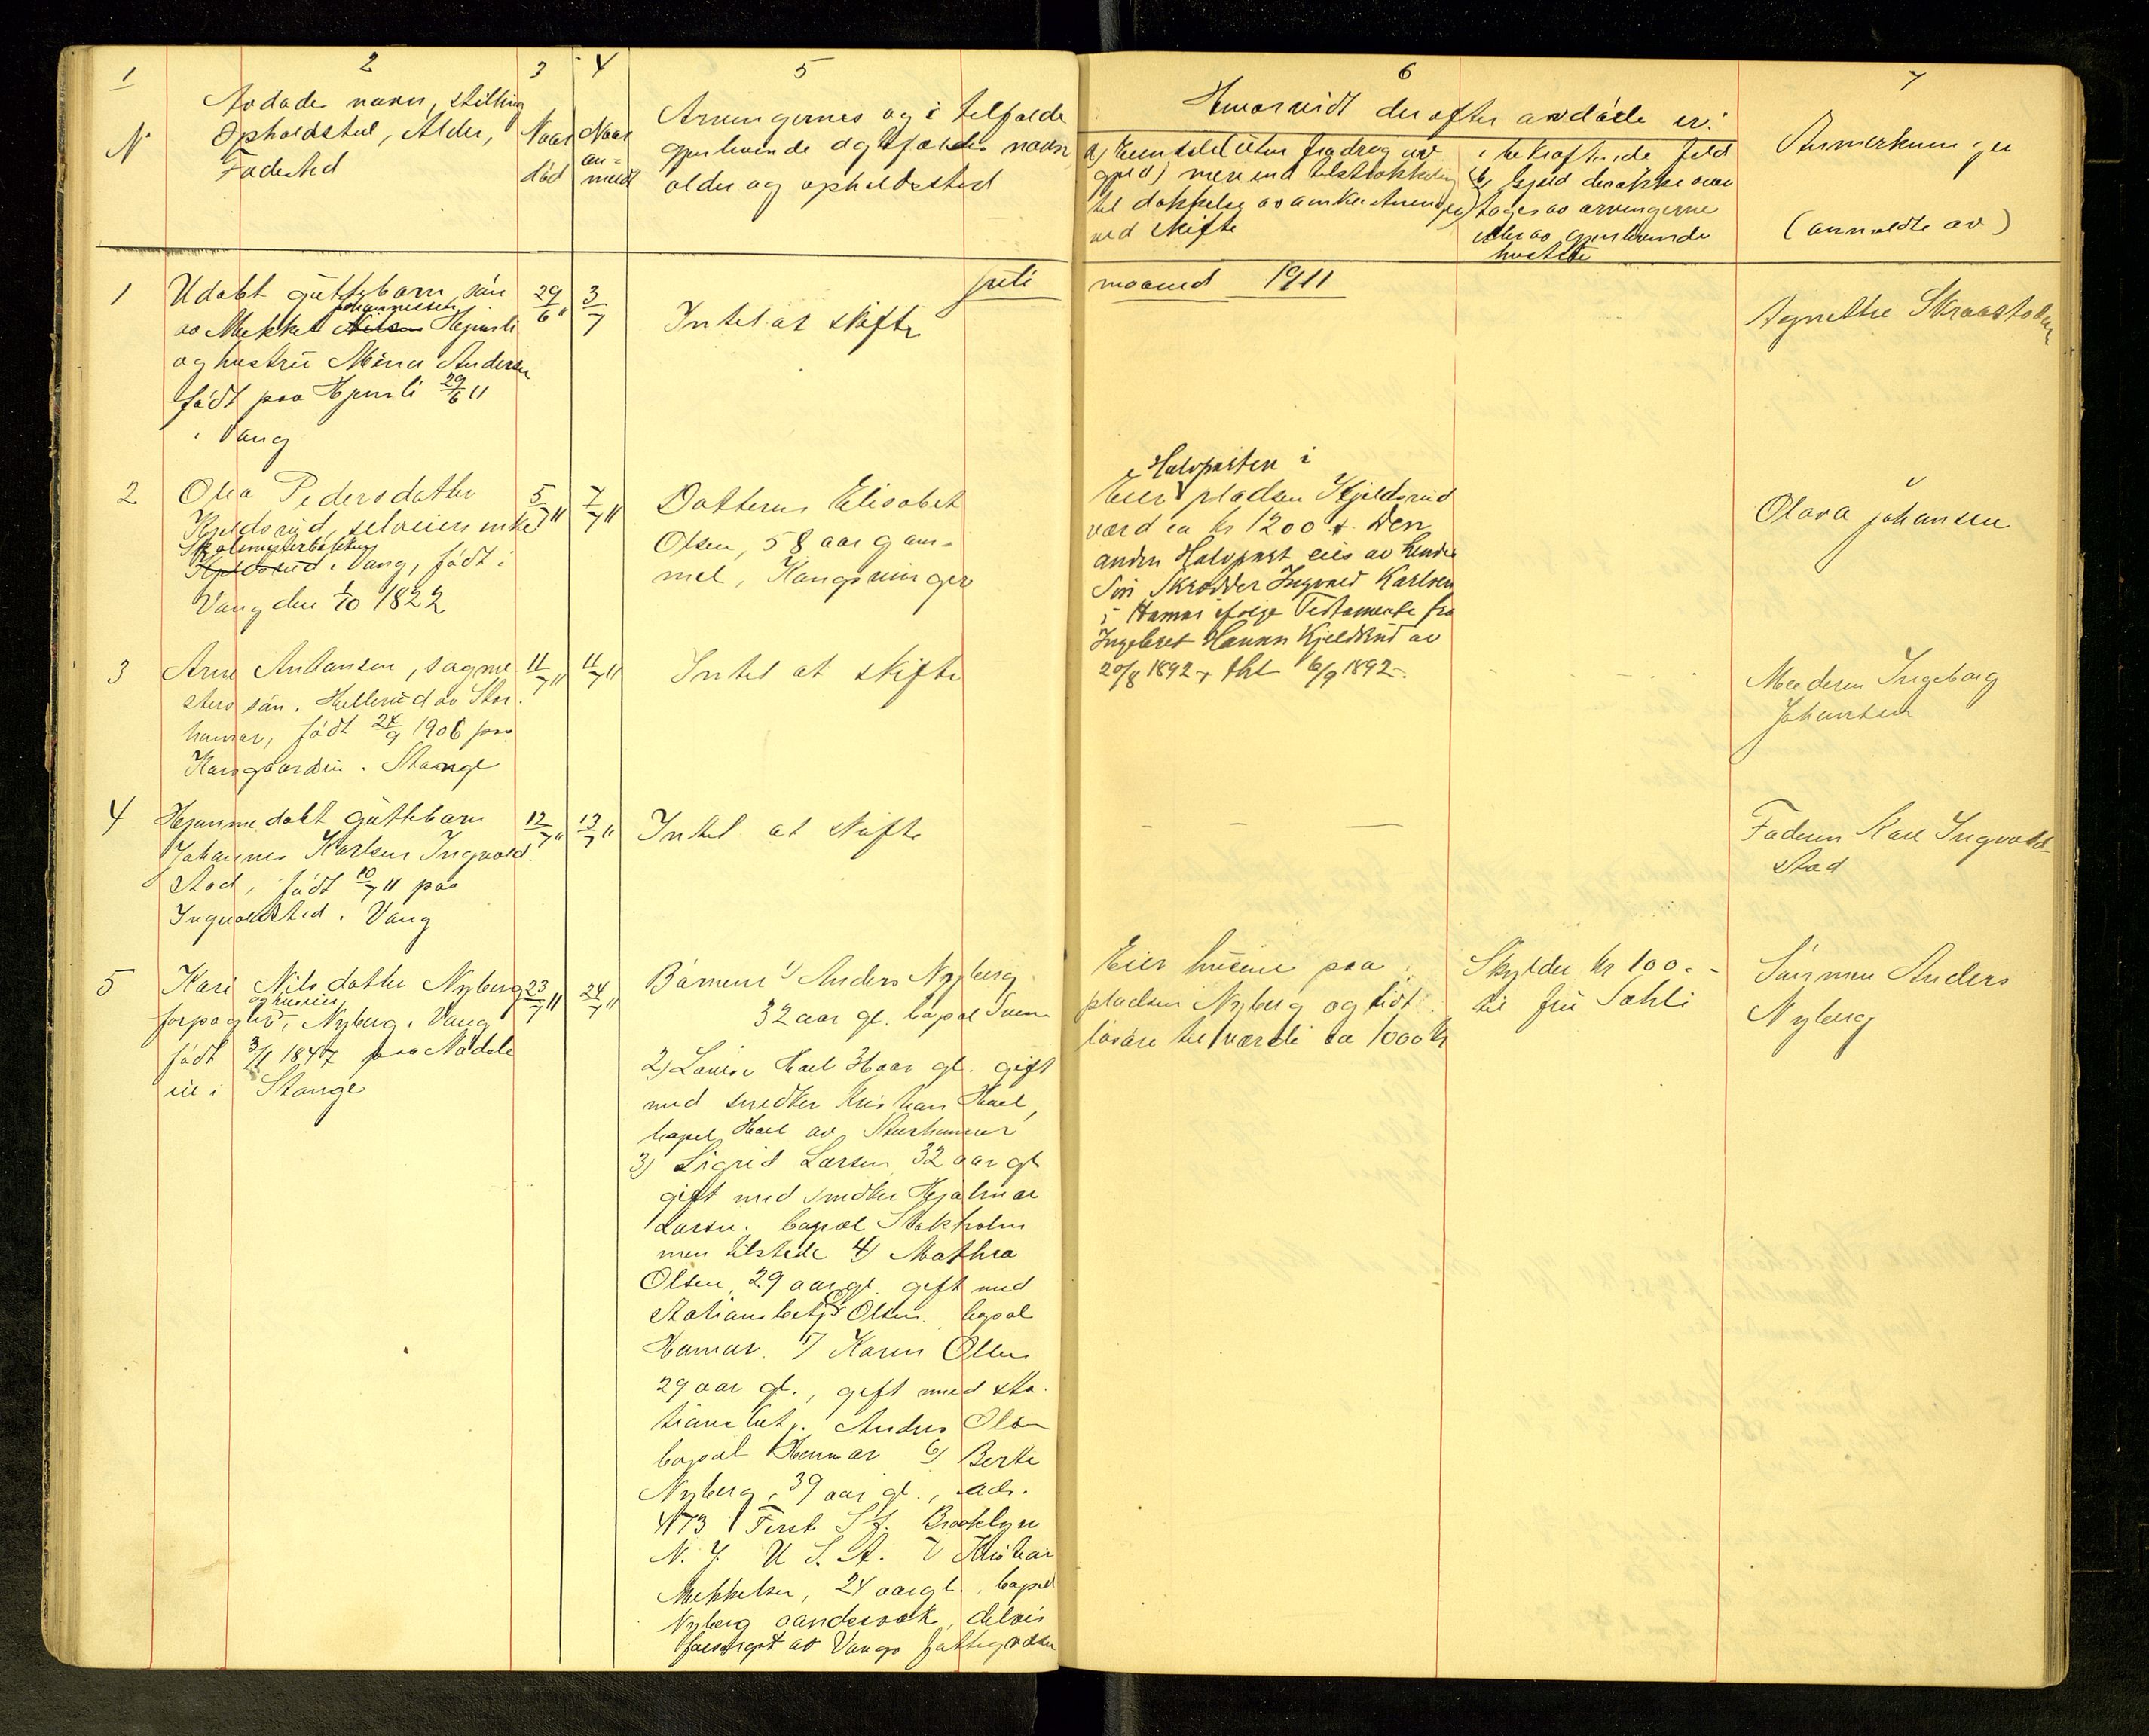 1
2
3
4
5
6
7
N
Avdødes navn, stilling
Opholdsted, Alder,
Fødested
Naar
død
Naar
an=
meldt
Arvingernes og i tilfælde
gjenlevende ægtefælles navn
alder og opholdssted
Hvorvidt der efter avdøde er:
a) Eiendele (uten fradrag av
gjæld) mere end tilstrækkelig
til dækkelse av omkostninger
ved skifte
i bekræftende fald
b) Gjæld der ikke over
tages av arvingerne
eller av gjenlevende
hustru
Anmerkninger
(anmeldte av)
juli
maaned 1911
1
Udøbt guttebarn, søn
Johannessen
av Mekkel Hjemli
og hustru Mina Andersen
født paa Hjemli 29/6 11
i Vang
29/6 11
3/7
Intet at skifte
Agnethe Skraastaden
2
Olea Pedersdatter
Kjeldsrud, selveierenke
Skolemesterbakken
Kjeldsrud i Vang, født i
Vang den 1/10 1822
5/7 11
7/7 11
Datteren Elisabet
Olsen, 58 aar gam=
mel, Kongsvinger
Halvparten i
Eier pladsen Kjeldsrud
værd ca kr 1200.- Den
anden Halvpart eies av hendes
Søn Skrædder Ingvald Karlsen
i Hamar ifølge Testamente fra
Ingeberet Hansen Kjeldsrud av
20/8 1892, thl 6/9 1892.
Olava Johansen
3
Arne Antonsen, sagme
sters søn, Hellerud av Stor
hamar, født 24/9 1906 paa
Korsgaarden i Stange
11/7 11
11/7 11
Intet at skifte
Moderen Ingeborg
Johansen
4
Hjemmedøbt guttebarn
Johannes Karlsen Ingvold
stad, født 10/7 11 paa
Ingvoldstad i Vang
12/7 11
13/7 11
Intet at skifte
— — —
Faderen Karl Ingvold
stad
5
Kari Nilsdatter Nyberg
og huseier
forpagter, Nyberg i Vang
født 3/1 1847 paa Nødsle
eie i Stange
23/7 11
24/7 11
Børnene 1) Anders Nyberg
32 aar gl. bopæl Sven
2) Louise Hoel 3 aar gl. gift
med snedker Kristian Hoel,
bopæl Hoel av Storhamar
3) Sigrid Larsen 32 aar gl
gift med snedker Hjalmar
Larsen. bopæl Stokholm
men tilstede 4) Mathea
Olsen, 29 aar gl. gift med
Stationsbetj. Olsen. bopæl
Hamar. 5) Karen Olsen
29 aar gl., gift med sta
tionsbetj. Anders Olsen
bopæl Hamar 6) Berte
Nyberg, 39 aar gl., adr.
473 First St. Brooklyn
N. Y. U. S. A. 7 Kristian
Mekkelsen, 24 aar gl., bopæl
Nyberg aandssvak, delvis
forsørget av Vangs fattigvæsen
Eier husene paa
pladsen Nyberg og lidt
løsøre til værdi ca 1000 kr
Skylder kr 100.-
til fru Sahli
Sønnen Anders
Nyberg